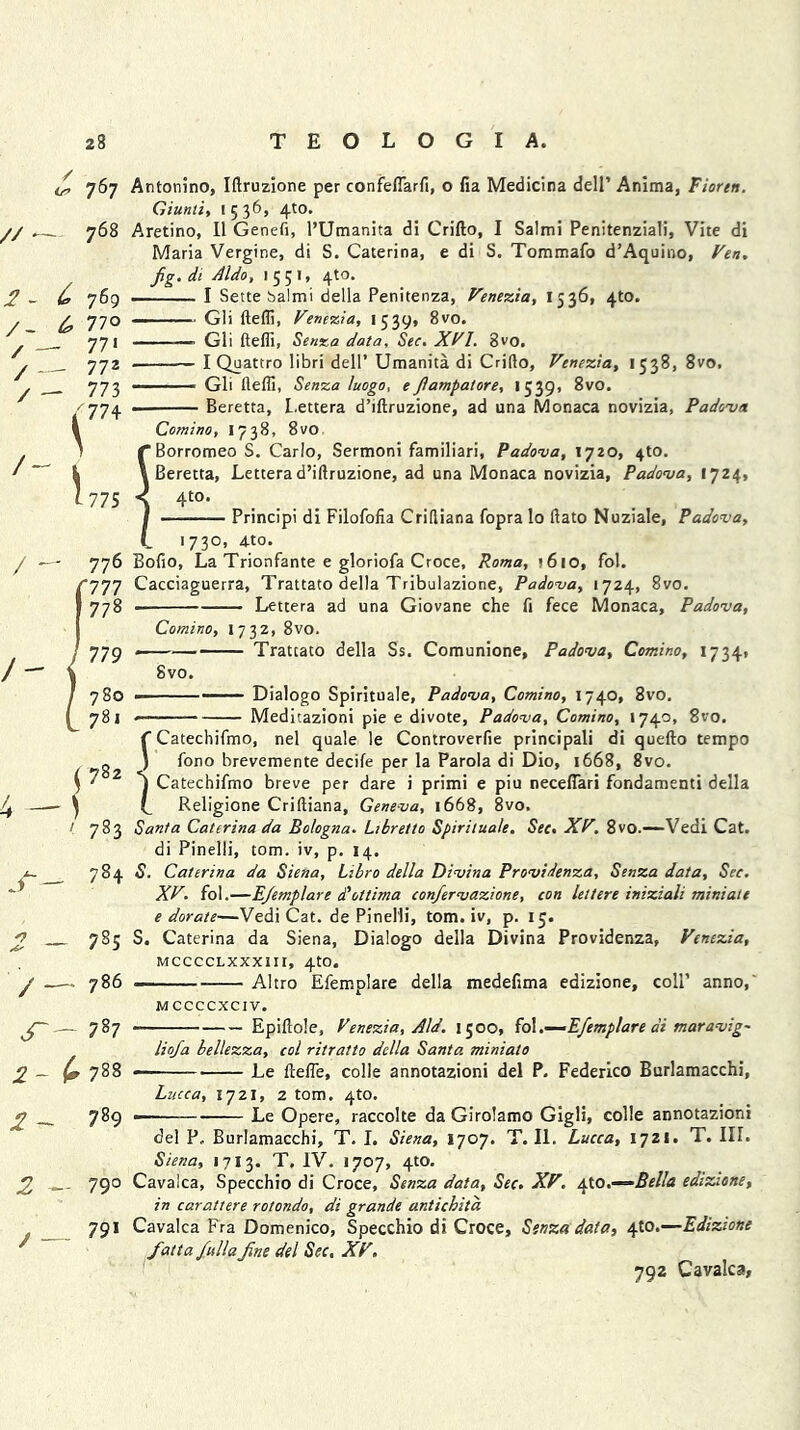 28 TEOLOGIA.
6 767 Antonino, Iſtruzione per confeſſarſi, o ſia Medicina dell' Anima, Fioren.
Giunti, 1536, 4to.
// — 768 Aretino, Il Geneſi, l'Umanita di Criſto, I Salmi Penitenziali, Vite di
Maria Vergine, di S. Caterina, e di S. Tommaſo d'Aquino, Ven.
fig. di Aldo, 1551, 4to.
2 - 6 769 ——— I Sette Salmi della Penitenza, Venezia, 1536, 4to.
/ - 6 770 ——— Gli ſteſſi, Venezia, 1539, 8vo.
/ — 771 ——— Gli ſteſſi, Senza data, Sec. XVI. 8vo.
/ — 772 ——— I Quattro libri dell' Umanità di Criſto, Venezia, 1538, 8vo.
/ — 773 ——— Gli ſteſſi, Senza luogo, e ſtampatore, 1539, 8vo.
774 ——— Beretta, Lettera d'iſtruzione, ad una Monaca novizia, Padova
Comino, 1738, 8vo
Borromeo S. Carlo, Sermoni familiari, Padova, 1720, 4to.
/ - Beretta, Lettera d'iſtruzione, ad una Monaca novizia, Padova, 1724,
775 4to.
——— Principi di Filoſoſia Criſtiana ſopra lo ſtato Nuziale, Padova,
1730, 4to.
/ — 776 Boſio, La Trionfante e glorioſa Croce, Roma, 1610, fol.
777 Cacciaguerra, Trattato della Tribulazione, Padova, 1724, 8vo.
778 ——— Lettera ad una Giovane che ſi fece Monaca, Padova,
Comino, 1732, 8vo.
779 ——— Trattato della Ss. Comunione, Padova, Comino, 1734,
/ - 8vo.
780 ——— Dialogo Spirituale, Padova, Comino, 1740, 8vo.
781 ——— Meditazioni pie e divote, Padova, Comino, 1740, 8vo.
Catechiſmo, nel quale le Controverſie principali di queſto tempo
782 ſono brevemente deciſe per la Parola di Dio, 1668, 8vo.
Catechiſmo breve per dare i primi e piu neceſſari fondamenti della
4 — Religione Criſtiana, Geneva, 1668, 8vo.
783 Santa Caterina da Bologna. Libretto Spirituale. Sec. XV. 8vo.—Vedi Cat.
di Pinelli, tom. iv, p. 14.
5 — 784 S. Caterina da Siena, Libro della Divina Providenza, Senza data, Sec.
XV. fol.—Eſemplare d'ottima conſervazione, con lettere iniziali miniate
e dorate—Vedi Cat. de Pinelli, tom. iv, p. 15.
2 — 785 S. Caterina da Siena, Dialogo della Divina Providenza, Venezia,
MCCCCLXXXIII, 4to.
/ — 786 ——— Altro Eſemplare della medeſima edizione, coll' anno,
MCCCCXCIV.
5 — 787 ——— Epiſtole, Venezia, Ald. 1500, fol.—Eſemplare di maravig-
lioſa bellezza, col ritratto della Santa miniato
2 - 6 788 ——— Le ſteſſe, colle annotazioni del P. Federico Burlamacchi,
Lucca, 1721, 2 tom. 4to.
2 — 789 ——— Le Opere, raccolte da Girolamo Gigli, colle annotazioni
del P. Burlamacchi, T. I. Siena, 1707. T. II. Lucca, 1721. T. III.
Siena, 1713. T. IV. 1707, 4to.
2 — 790 Cavalca, Specchio di Croce, Senza data, Sec. XV. 4to.—Bella edizione,
in carattere rotondo, di grande antichità
/ — 791 Cavalca Fra Domenico, Specchio di Croce, Senza data, 4to.—Edizione
fatta ſulla fine del Sec. XV.
792 Cavalca,